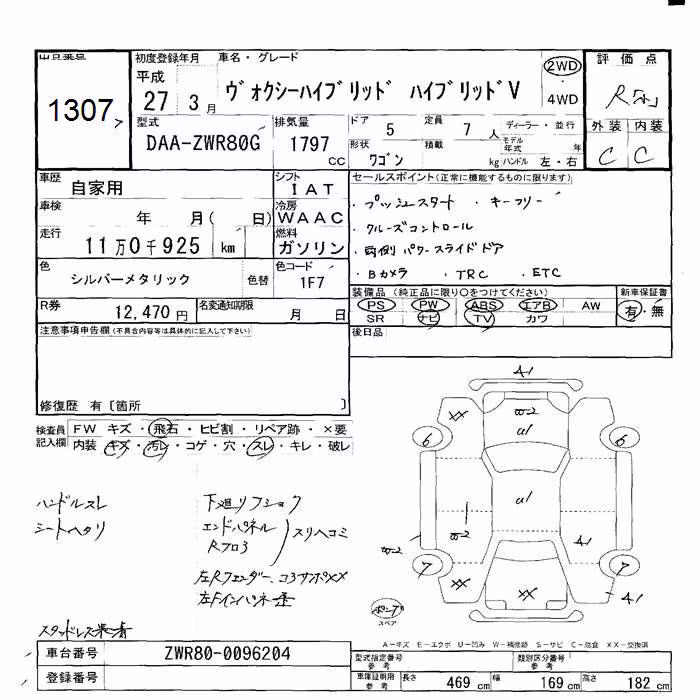 出品番号
1307
初度登録年月
平成
27 3月
車名・グレード
ヴォクシーハイブリッド ハイブリッドV
2WD
4WD
評価点
R
外装 内装
C C
型式
DAA-ZWR80G
排気量
1797 CC
ドア 5
定員 7人
ディーラー・並行
形状 ワゴン
積載 kg
モデル年式 年
ハンドル 左・右
車歴
自家用
シフト
IAT
車検 年 月( 日)
冷房
WAAC
走行
11万0千925 km
燃料
ガソリン
色
シルバーメタリック 色替
色コード
1F7
R券 12,470円
名変通知期限 月 日
セールスポイント(正常に機能するものに限ります)
・プッシュスタート ・キーフリー
・クルーズコントロール
・両側パワースライドドア
・Bカメラ ・TRC ・ETC
装備品(純正品に限り○をつけてください)
PS PW ABS エアB AW
SR ナビ TV カワ
新車保証書
有・無
後日品
注意事項申告欄(不具合内容等は具体的に記入して下さい)
修復歴 有〔箇所 〕
検査員記入欄
FW キズ・飛石・ヒビ割・リペア跡・×要
内装 キズ・汚レ・コゲ・穴・スレ・キレ・破レ
ハンドルスレ
シートヘタリ
下廻リフショク
エンドパネル
Rフロ3
スリヘコミ
左Rフェンダー、コ3サポXX
スタッドレス
A1
XX W2
U1
6 6
U1
W2 W2 A1
7 7
XX XX A1
スペア
A-キズ E-エクボ U-凹み W-補修跡 S-サビ C-腐食 XX-交換済
車台番号 ZWR80-0096204
登録番号
型式指定番号 参考
類別区分番号 参考
車庫証明用参考 長さ 469cm 幅 169cm 高さ 182cm